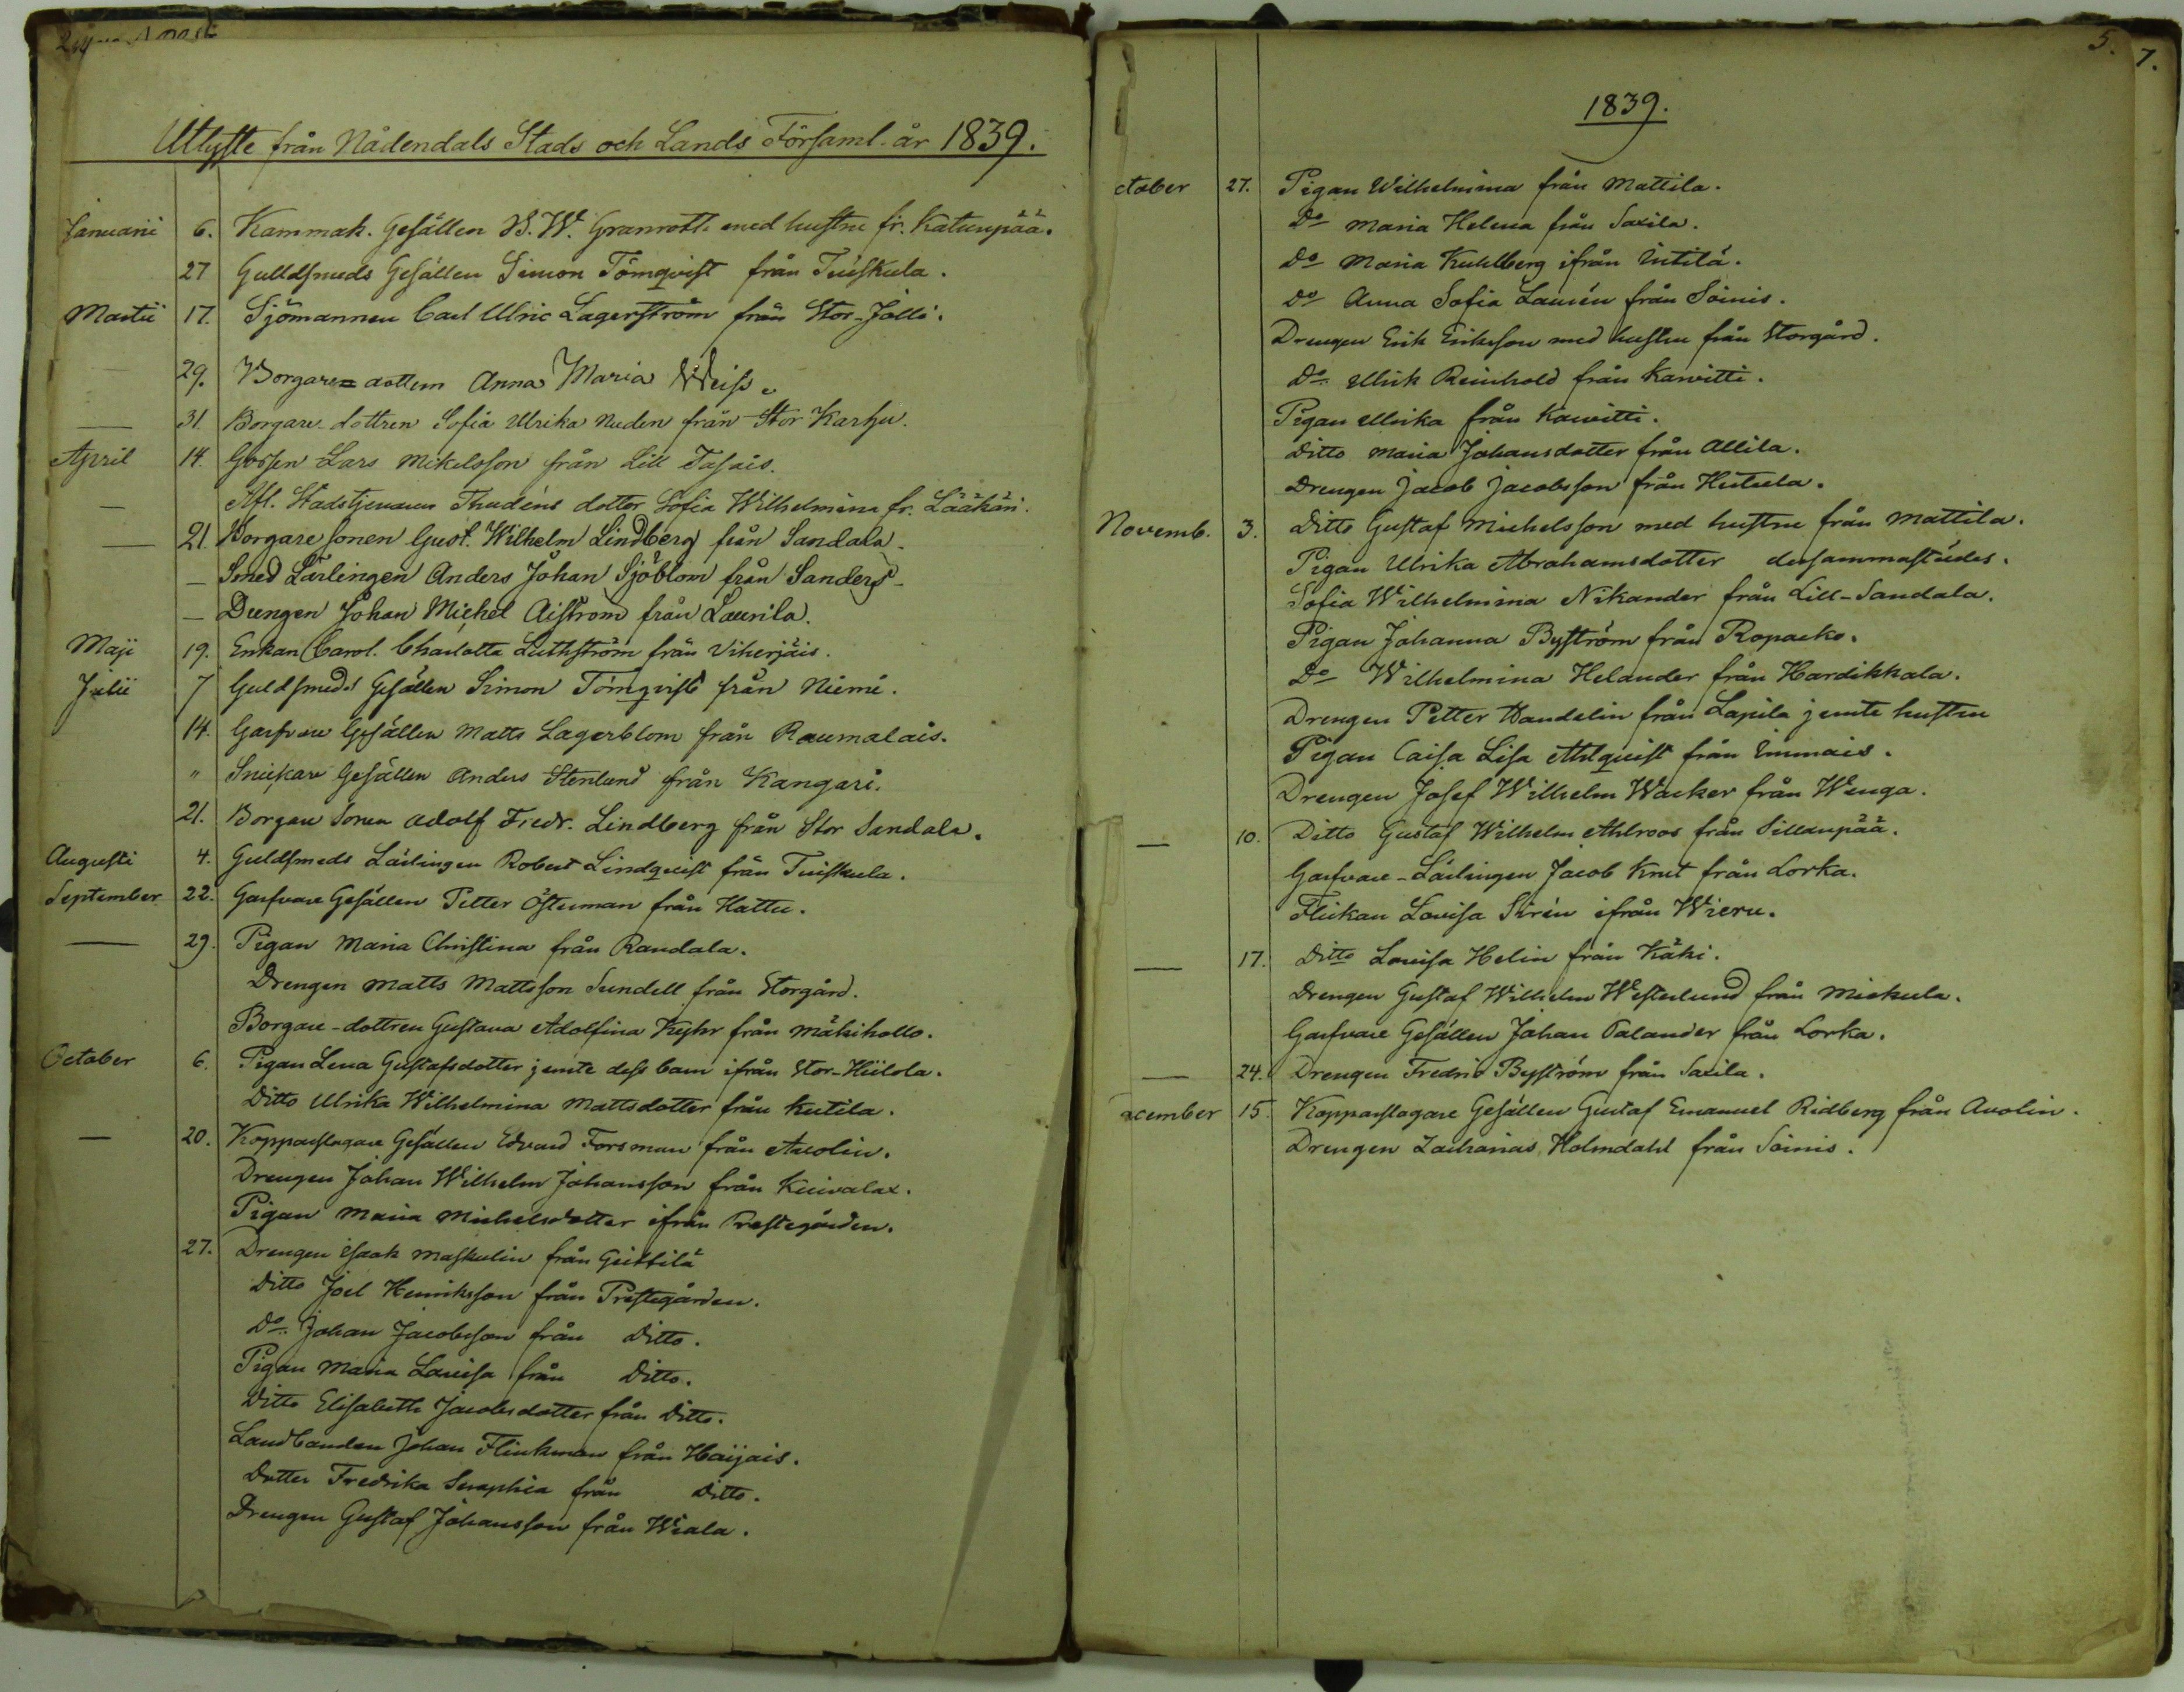 Utlyste från Nådendals Stads och Lands Församl. år 1839.
Januarii 6. Kammak. Gesällen B. W. Granroth med hustru fr. Katunpää.
27 Gulldsmeds Gesällen Simon Törnqvist från Tuiskula.
Martii 17. Sjömannen Carl Ulric Lagerström från Stor-Jolli.
29. Borgare=dottern Anna Maria Weiss.
— 31. Borgare-dottren Sofia Ulrika Nuden från Stor Karhu.
April 14. Gossen Lars Mikelsson från Lill Tasais.
— Afl. Stadstjenaren Thudéns dotter Sofia Wilhelmina fr. Lääkäri.
— 21. Borgare sonen Gust. Wilhelm Lindberg från Sandala.
— Smed Lärlingen Anders Johan Sjöblom från Sanders-
— Drengen Johan Michel Aiström från Laurila.
Maji 19. Enkan Carol. Charlotta Luthström från Viherjäis.
Julii 7 Guldsmeds Gesällen Simon Törnqvist från Niemi.
14. Garfvare Gesällen Matts Lagerblom från Raumalais.
" Snickare Gesällen Anders Stenlund från Kangari.
21. Borgare Sonen Adolf Fredr. Lindberg från Stor Sandala.
Augusti 4. Guldsmeds Lärlingen Robert Lindqvist från Tuiskula.
September 22. Garfvare Gesällen Petter Österman från Hattu.
— 29. Pigan Maria Christina från Randala.
Drengen Matts Mattsson Sundell från Storgård.
Borgare-dottren Gustava Adolfina Kyhr från Mäkihollo.
October 6. Pigan Lena Gustafsdotter jemte dess barn ifrån Stor-Hiilola.
Ditto Ulrika Wilhelmina Mattsdotter från Kutila.
— 20. Kopparslagare Gesällen Edvard Forsman från Auolin.
Drengen Johan Wilhelm Johansson från Kuivalax.
Pigan Maria Michelsdotter ifrån Prestegården.
27. Drengen Isaak Maskulin från Geittilä
Ditto Joel Henriksson från Prestegården.
Do. Johan Jacobsson från Ditto.
Pigan Maria Lovisa från Ditto.
Ditto Elisabeth Jacobsdotter från Ditto.
Landbonden Johan Flinkman från Haijais.
Dotter Fredrika Seraphia från Ditto.
Drengen Gustaf Johansson från Wiala.
5.
7.
1839.
ctober 27. Pigan Wilhelmina från Mattila.
Do Maria Helena från Saxila.
Do Maria Kuhlberg ifrån Intilä.
Do Anna Sofia Laurén från Soinis.
Drengen Erik Eriksson med hustru från Storgård.
Do. Ulrik Reinhold från Karvitti.
Pigan Ulrika från Karvitti.
Ditto Maria Johansdotter från Allila.
Drengen Jacob Jacobsson från Hutula.
Novemb. 3. Ditto Gustaf Michelsson med hustru från Mattila.
Pigan Ulrika Abrahamsdotter dersammastädes.
Sofia Wilhelmina Nikander från Lill-Sandala.
Pigan Johanna Byström från Ropacko.
Do Wilhelmina Helander från Hardikkala.
Drengen Petter Wandelin från Lapila jemte hustru
Pigan Caisa Lisa Ahlqvist från Immais.
Drengen Josef Wilhelm Wacker från Wenga.
— 10. Ditto Gustaf Wilhelm Ahlroos från Sillanpää.
Garfvare-Lärlingen Jacob Knut från Lorka.
Flickan Lovisa Sirén ifrån Wieru.
— 17. Ditto Lovisa Helin från Käki.
Drengen Gustaf Wilhelm Westerlund från Mickula.
Garfvare Gesällen Johan Palander från Lorka.
— 24. Drengen Fredric Byström från Saxila.
ecember 15. Kopparslagare Gesällen Gustaf Emanuel Ridberg från Auolin.
Drengen Zacharias Holmdahl från Soinis.